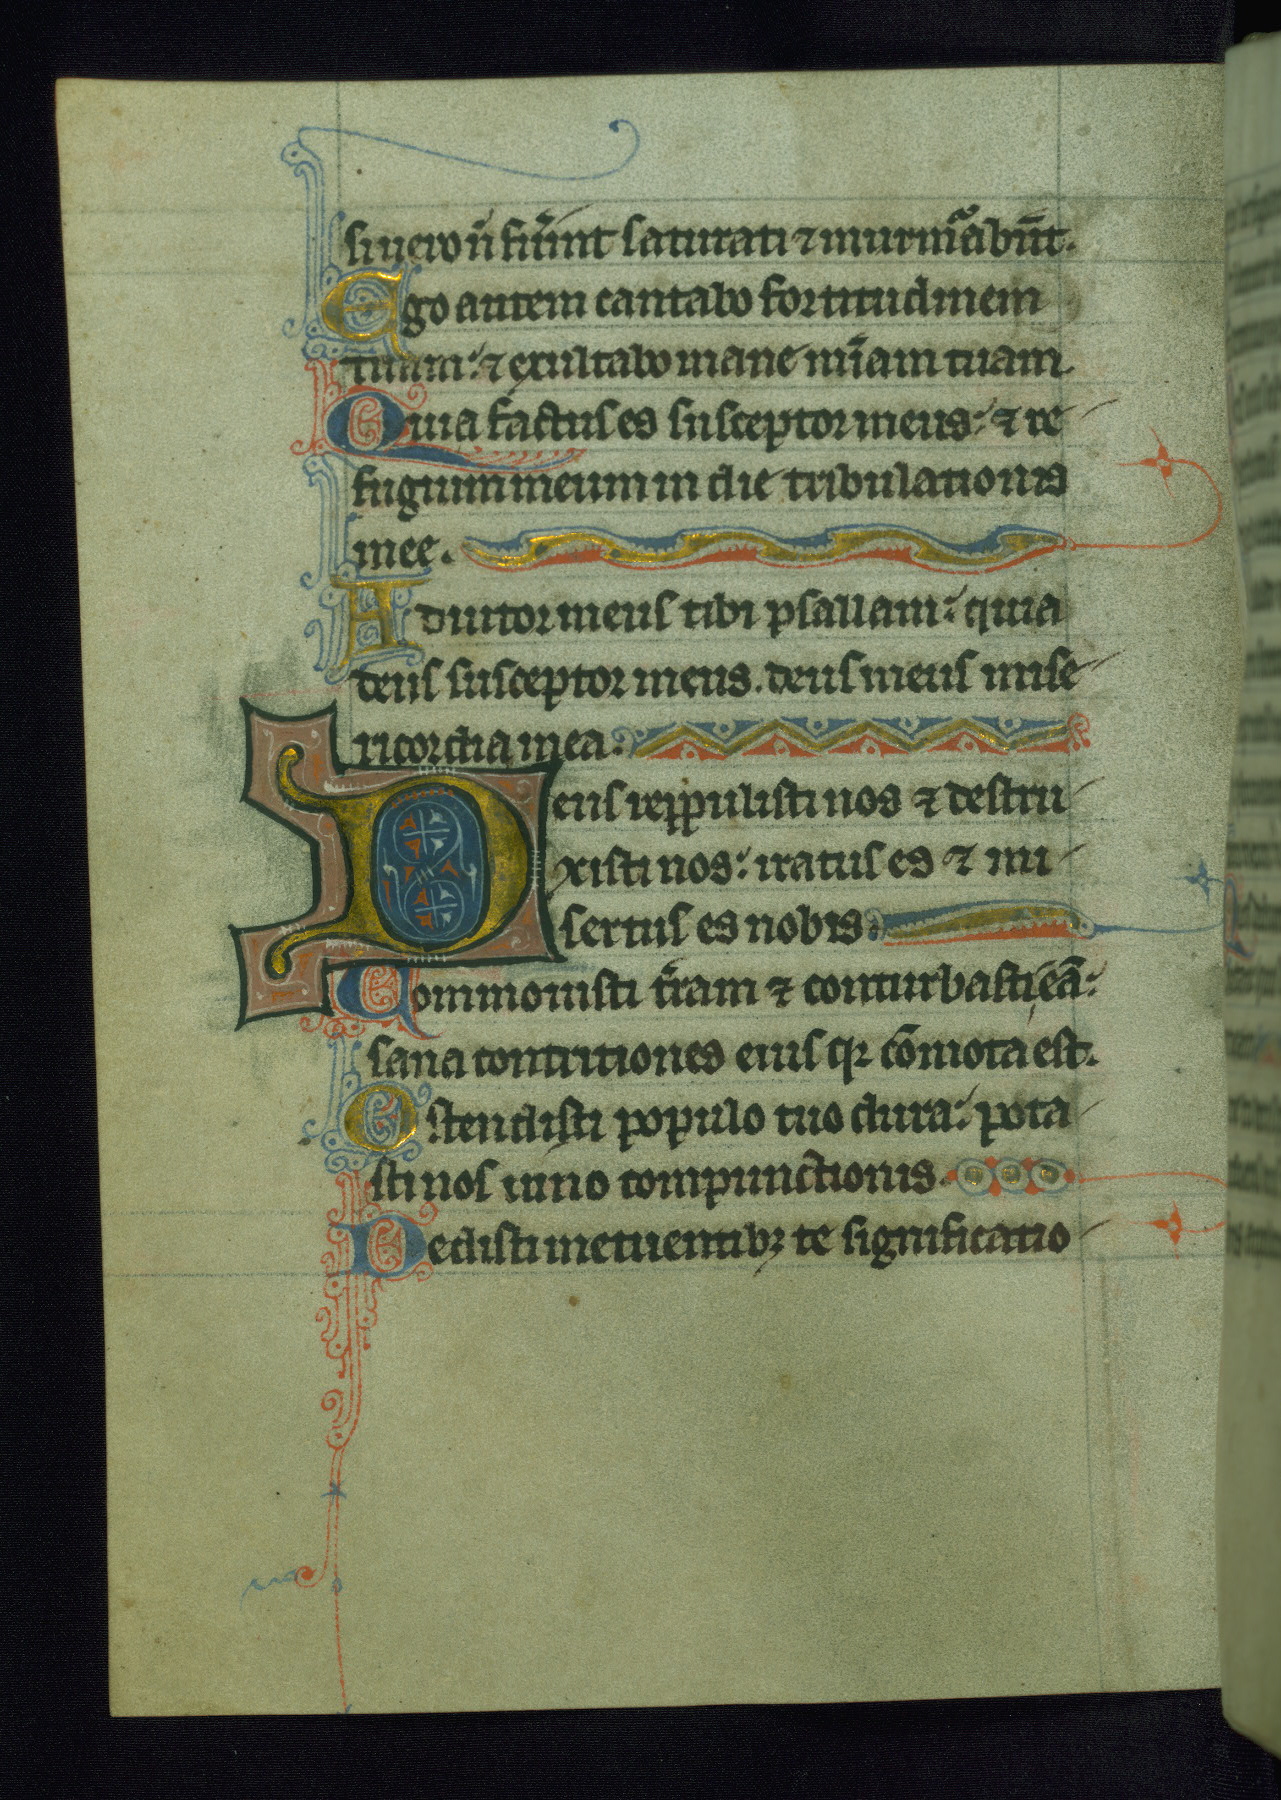 si uero ñ fuı̃int saturati ⁊ murmᷓabūt.
Ego autem cantabo fortitudinem
tuam: ⁊ exultabo mane mĩam tuam
Quia factus es susceptor meus: ⁊ re
fugium meum in die tribulationis
mee.
Adiutor meus tibi psallam: quia
deus susceptor meus. deus meus mise
ricordia mea.
Deus reppulisti nos ⁊ destru
xisti nos: iratus es ⁊ mi
sertus es nobis.
Commouisti t̃ram ⁊ conturbasti eā:
sana contritiones eius qꝛ cōmota est.
Ostendisti populo tuo dura: pota
sti nos uino compunctionis.
Dedisti metuentibꝫ te significatio